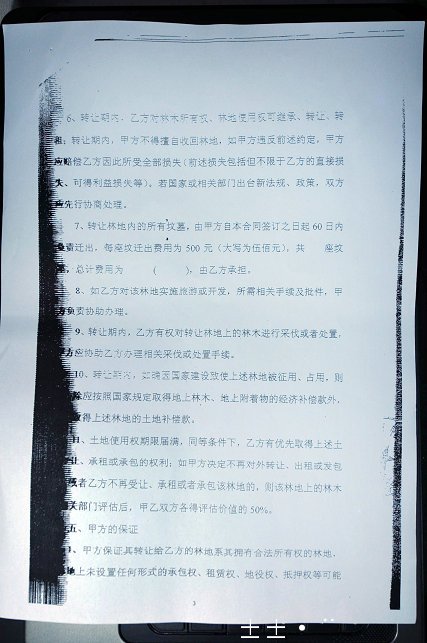 6、转让期内，乙方对林木所有权、林地使用权可继承、转让、转
租；转让期内，甲方不得擅自收回林地，如甲方违反前述约定，甲方
应赔偿乙方因此所受全部损失（前述损失包括但不限于乙方的直接损
失、可得利益损失等）。若国家或相关部门出台新法规、政策，双方
应先行协商处理。
7、转让林地内的所有坟墓，由甲方自本合同签订之日起 60 日内
负责迁出，每座坟迁出费用为 500 元（大写为伍佰元），共 座坟
，总计费用为 （ ），由乙方承担。
8、如乙方对该林地实施旅游或开发，所需相关手续及批件，甲
方负责协助办理。
9、转让期内，乙方有权对转让林地上的林木进行采伐或者处置，
甲方应协助乙方办理相关采伐或处置手续。
10、转让期内，如确因国家建设致使上述林地被征用、占用，则
除应按照国家规定取得地上林木、地上附着物的经济补偿款外，
取得上述林地的土地补偿款。
11、土地使用权期限届满，同等条件下，乙方有优先取得上述土
让、承租或承包的权利；如甲方决定不再对外转让、出租或发包
或者乙方不再受让、承租或者承包该林地的，则该林地上的林木
相关部门评估后，甲乙双方各得评估价值的 50%。
五、甲方的保证
1、甲方保证其转让给乙方的林地系其拥有合法所有权的林地、
地上未设置任何形式的承包权、租赁权、地役权、抵押权等可能
3